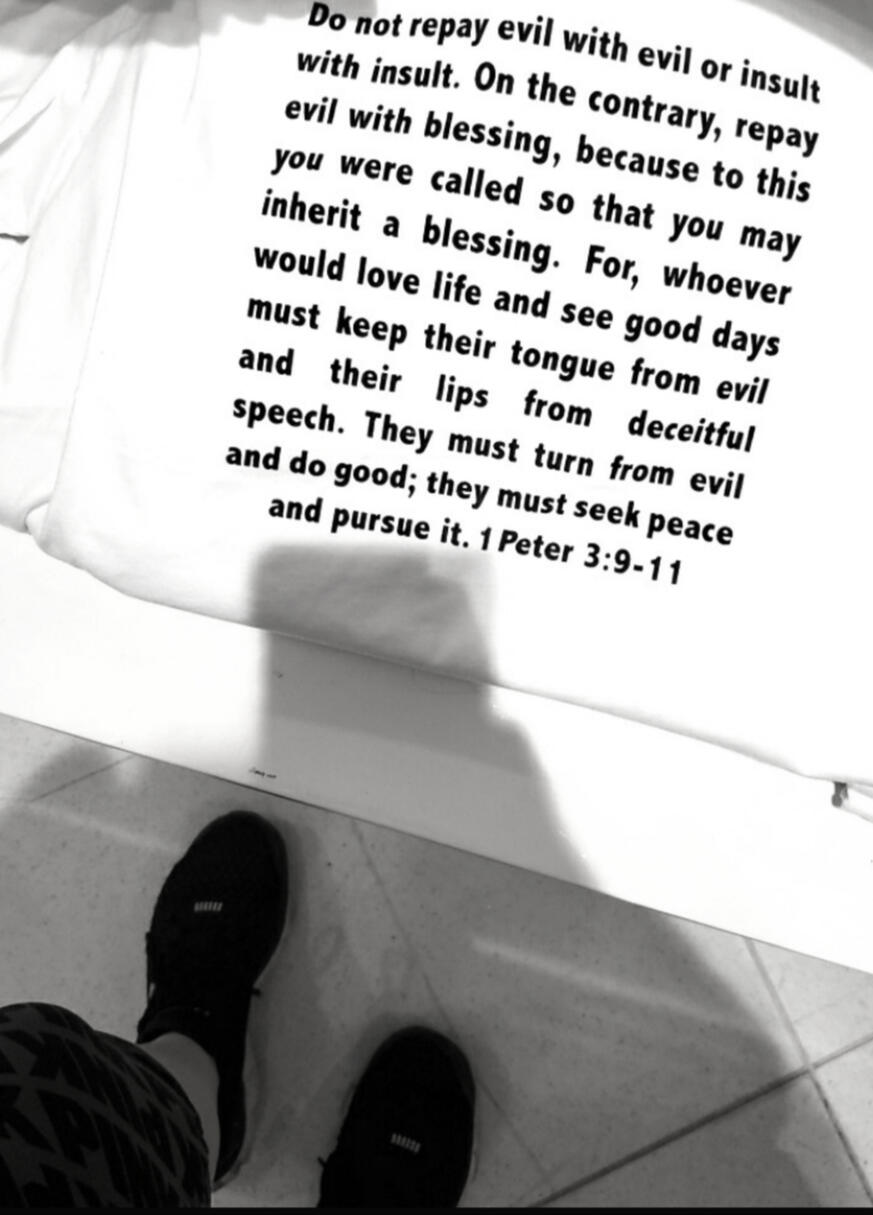 Do not repay evil with evil or insult
with insult. On the contrary, repay
evil with blessing, because to this
you were called so that you may
inherit a blessing. For, whoever
would love life and see good days
must keep their tongue from evil
and their lips from deceitful
speech. They must turn from evil
and do good; they must seek peace
and pursue it. 1 Peter 3:9-11